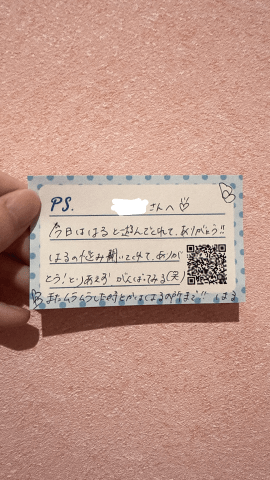 PS.
さんへ
今日ははると遊んでくれて、ありがとう!!
はるの悩み聞いてくれて、ありが
とう!とりあえず がんばってみる(笑)
またムラムラした時とかははるの所まで!! はる